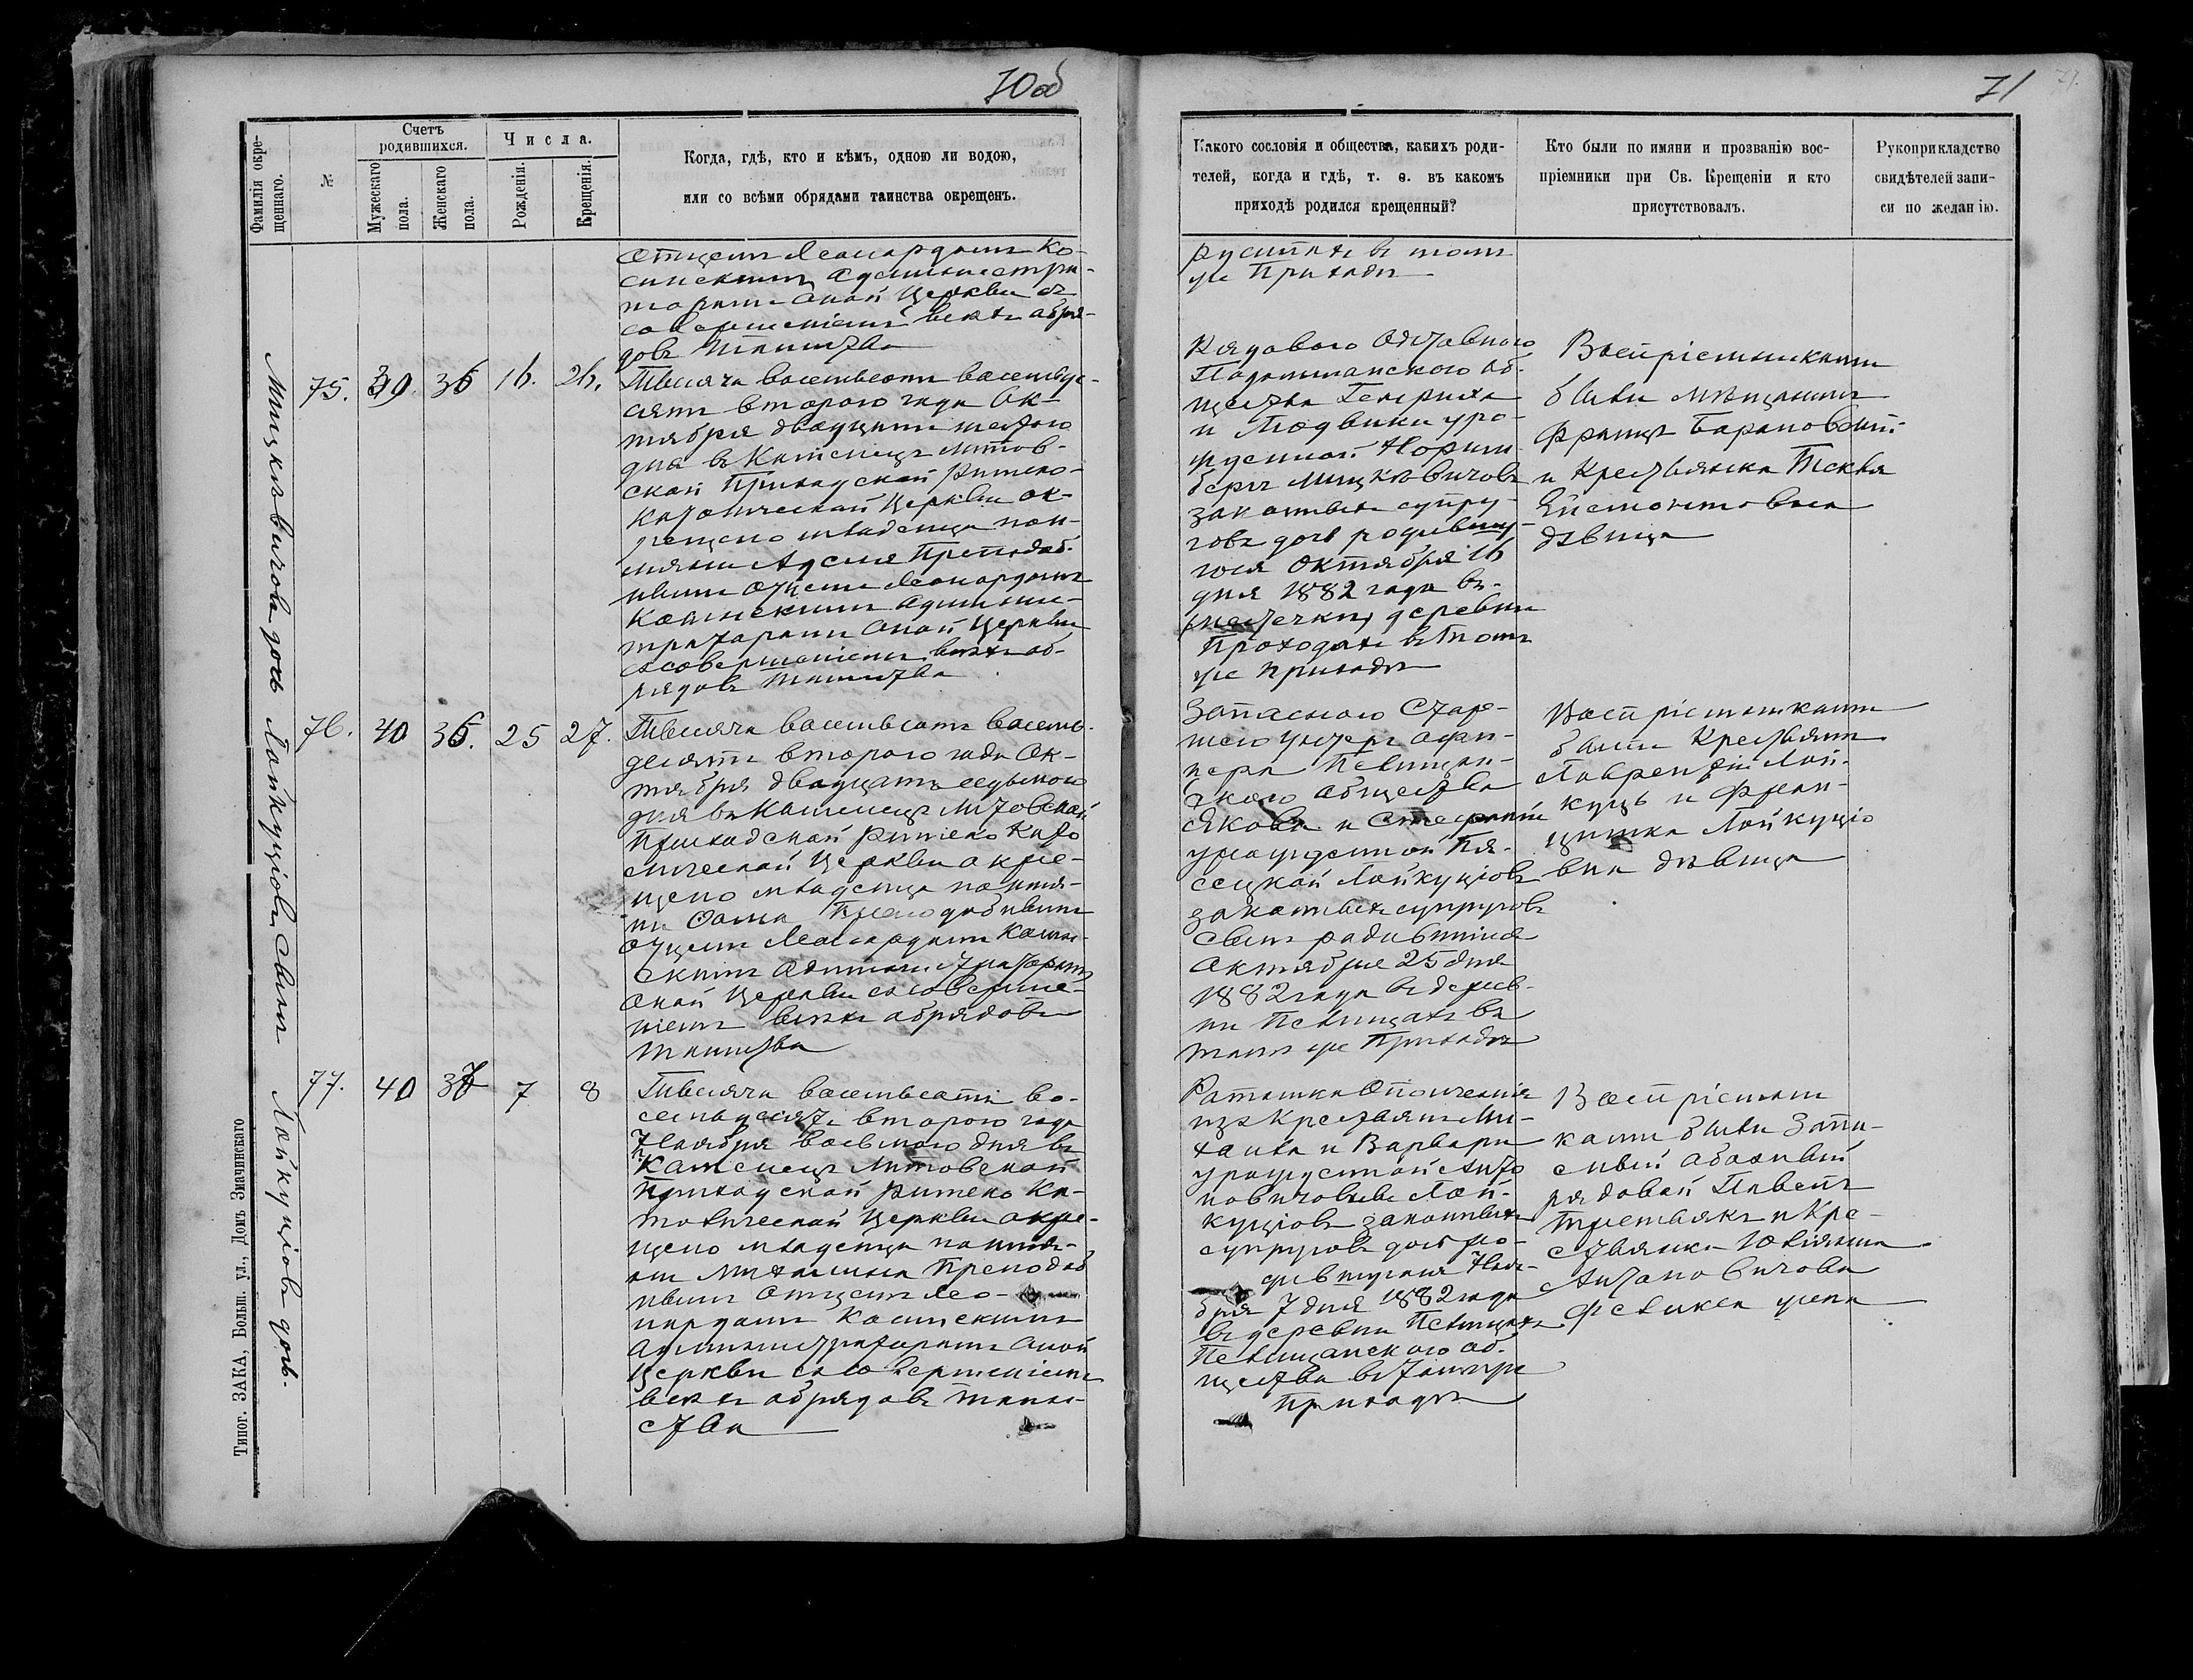 70об
Фамилія окре-
щеннаго.
№
Счетъ
родившихся.
Мужескаго
пола.
Женскаго
пола.
Числа.
Рожденія.
Крещенія.
Когда, гдѣ, кто и кѣмъ, одною ли водою,
или со всѣми обрядами таинства окрещенъ.
отцемъ Леонардомъ Ко-
Администра-
торомъ оной Церкви съ
совершеніемъ всѣхъ обря-
довъ таинства
Мицкѣвичовъ дочь
75. 39 36 16. 26.
Тысяча восемьсотъ восемьде-
сятъ второго года Ок-
тября двадцать шестого
дня въ Каменецъ Литов-
ской Приходской Римско-
Католической Церкви ок-
рещено младенца по и-
мяни Адели Преподоб-
нымъ Отцемъ Леонардомъ
Админис-
траторомъ оной Церкви
съ совершеніемъ всѣхъ об-
рядовъ таинства
Лойкуціовъ сынъ
76. 40 36. 25 27.
Тысяча восемьсотъ восемь-
десятъ второго года Ок-
тября двадцать седьмого
дня въ Каменецъ Литовской
Приходской Римско Като
лической Церкви окре-
щено младенца по имя-
ни Преподобнымъ
Отцемъ Леонардомъ
Администраторомъ
оной Церкви съ соверше-
ніемъ всѣхъ обрядовъ
таинства
Лойкуціовъ дочь.
77. 40 37 7 8
Тысяча восемьсотъ во-
семьдесятъ второго года
Ноября восьмого дня въ
Каменецъ Литовской
Приходской Римско Ка-
толической Церкви окре-
щено младенца по имя-
ни Преподоб
нымъ Отцемъ Лео-
нардомъ
Администраторомъ оной
Церкви съ совершеніемъ
всѣхъ обрядовъ таин-
ства
Типог. ЗАКА, Больш. ул., Домъ Значинскаго
71
71.
Какого сословія и общества, какихъ роди-
телей, когда и гдѣ, т. е. въ какомъ
приходѣ родился крещенный?
Кто были по имяни и прозванію вос-
пріемники при Св. Крещеніи и кто
присутствовалъ.
Рукоприкладство
свидѣтелей запи-
си по желанію.
въ томъ
же Приходѣ
Рядового Отставного
об-
щества Генриха
и Людвики уро-
жденной Норим
бергъ Мицкѣвичовъ
законныхъ супру-
говъ дочь родившу-
юся Октября 16
дня 1882 года въ
деревни
Проходахъ въ томъ
же Приходѣ
Воспріемниками
были мѣщанинъ
Францъ Барановскій
и Крестьянка Текля
дѣвица
Запасного Стар-
шего Унтеръ Офи-
цера Пелищан-
ского общества
Якова и Стефаніи
урожденной Пя-
сецкой Лойкуціовъ
законныхъ супруговъ
сынъ родившійся
Октября 25 дня
1882 года въ дерев-
ни Пелищахъ въ
томъ же Приходѣ
Воспріемниками
были Крестьянинъ
Лаврентій Лой-
куць и Фран-
цишка Лойкуціо
вна дѣвица
Ратника Ополченія
изъ Крестьянъ Ми-
хаила и Варвары
урожденной Анто
новичовны Лой-
куціовъ законныхъ
супруговъ дочь ро-
дившуюся Ноя-
бря 7 дня 1882 года
въ деревни Пелищахъ
Пелищанского об-
щества въ томъ же
Приходѣ
Воспріемни
ками были Запа-
сный обозный
рядовой Павелъ
Третьякъ и Кре-
стьянка Юліянна
Антоновичова
Феликса жена